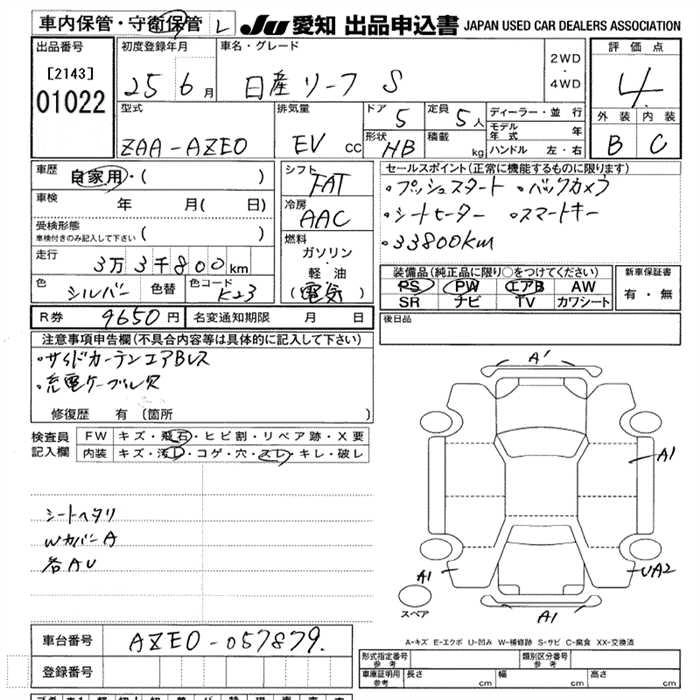 車内保管・守衛保管 L JU 愛知 出品申込書 JAPAN USED CAR DEALERS ASSOCIATION
出品番号 初度登録年月 車名・グレード 2WD・4WD 評価点
[2143]
01022
25 6月 日産リーフ S 4
型式 排気量 ドア 定員 ディーラー・並行 外装 内装
ZAA-AZE0 EV cc 5 5人 モデル年式 年 B C
形状 HB 積載 kg ハンドル 左・右
車歴 自家用・( )
シフト FAT
セールスポイント(正常に機能するものに限ります)
・プッシュスタート ・バックカメラ
・シートヒーター ・スマートキー
・33800km
車検 年 月( 日)
冷房 AAC
受検形態 車検付きのみ記入して下さい ( )
燃料 ガソリン 軽・油 (電気)
走行 3万3千800km
装備品(純正品に限り○をつけてください) 新車保証書
PS PW エアB AW 有・無
SR ナビ TV カワシート
色 シルバー 色替 色コード K23
R券 9650円 名変通知期限 月 日
後日品
注意事項申告欄(不具合内容等は具体的に記入して下さい)
・サイドカーテンエアBレス
・充電ケーブル欠
修復歴 有(箇所 )
検査員記入欄 FW キズ・飛石・ヒビ割・リペア跡・X要
内装 キズ・汚レ・コゲ・穴・スレ・キレ・破レ
シートヘタリ
WカバーA
各AU
A1
A1
A1
UA2
A1
スペア
A-キズ E-エクボ U-凹み W-補修跡 S-サビ C-腐食 XX-交換済
車台番号 AZE0-057879
登録番号
形式指定番号 参考 類別区分番号 参考
車庫証明用 参考 長さ cm 幅 cm 高さ cm